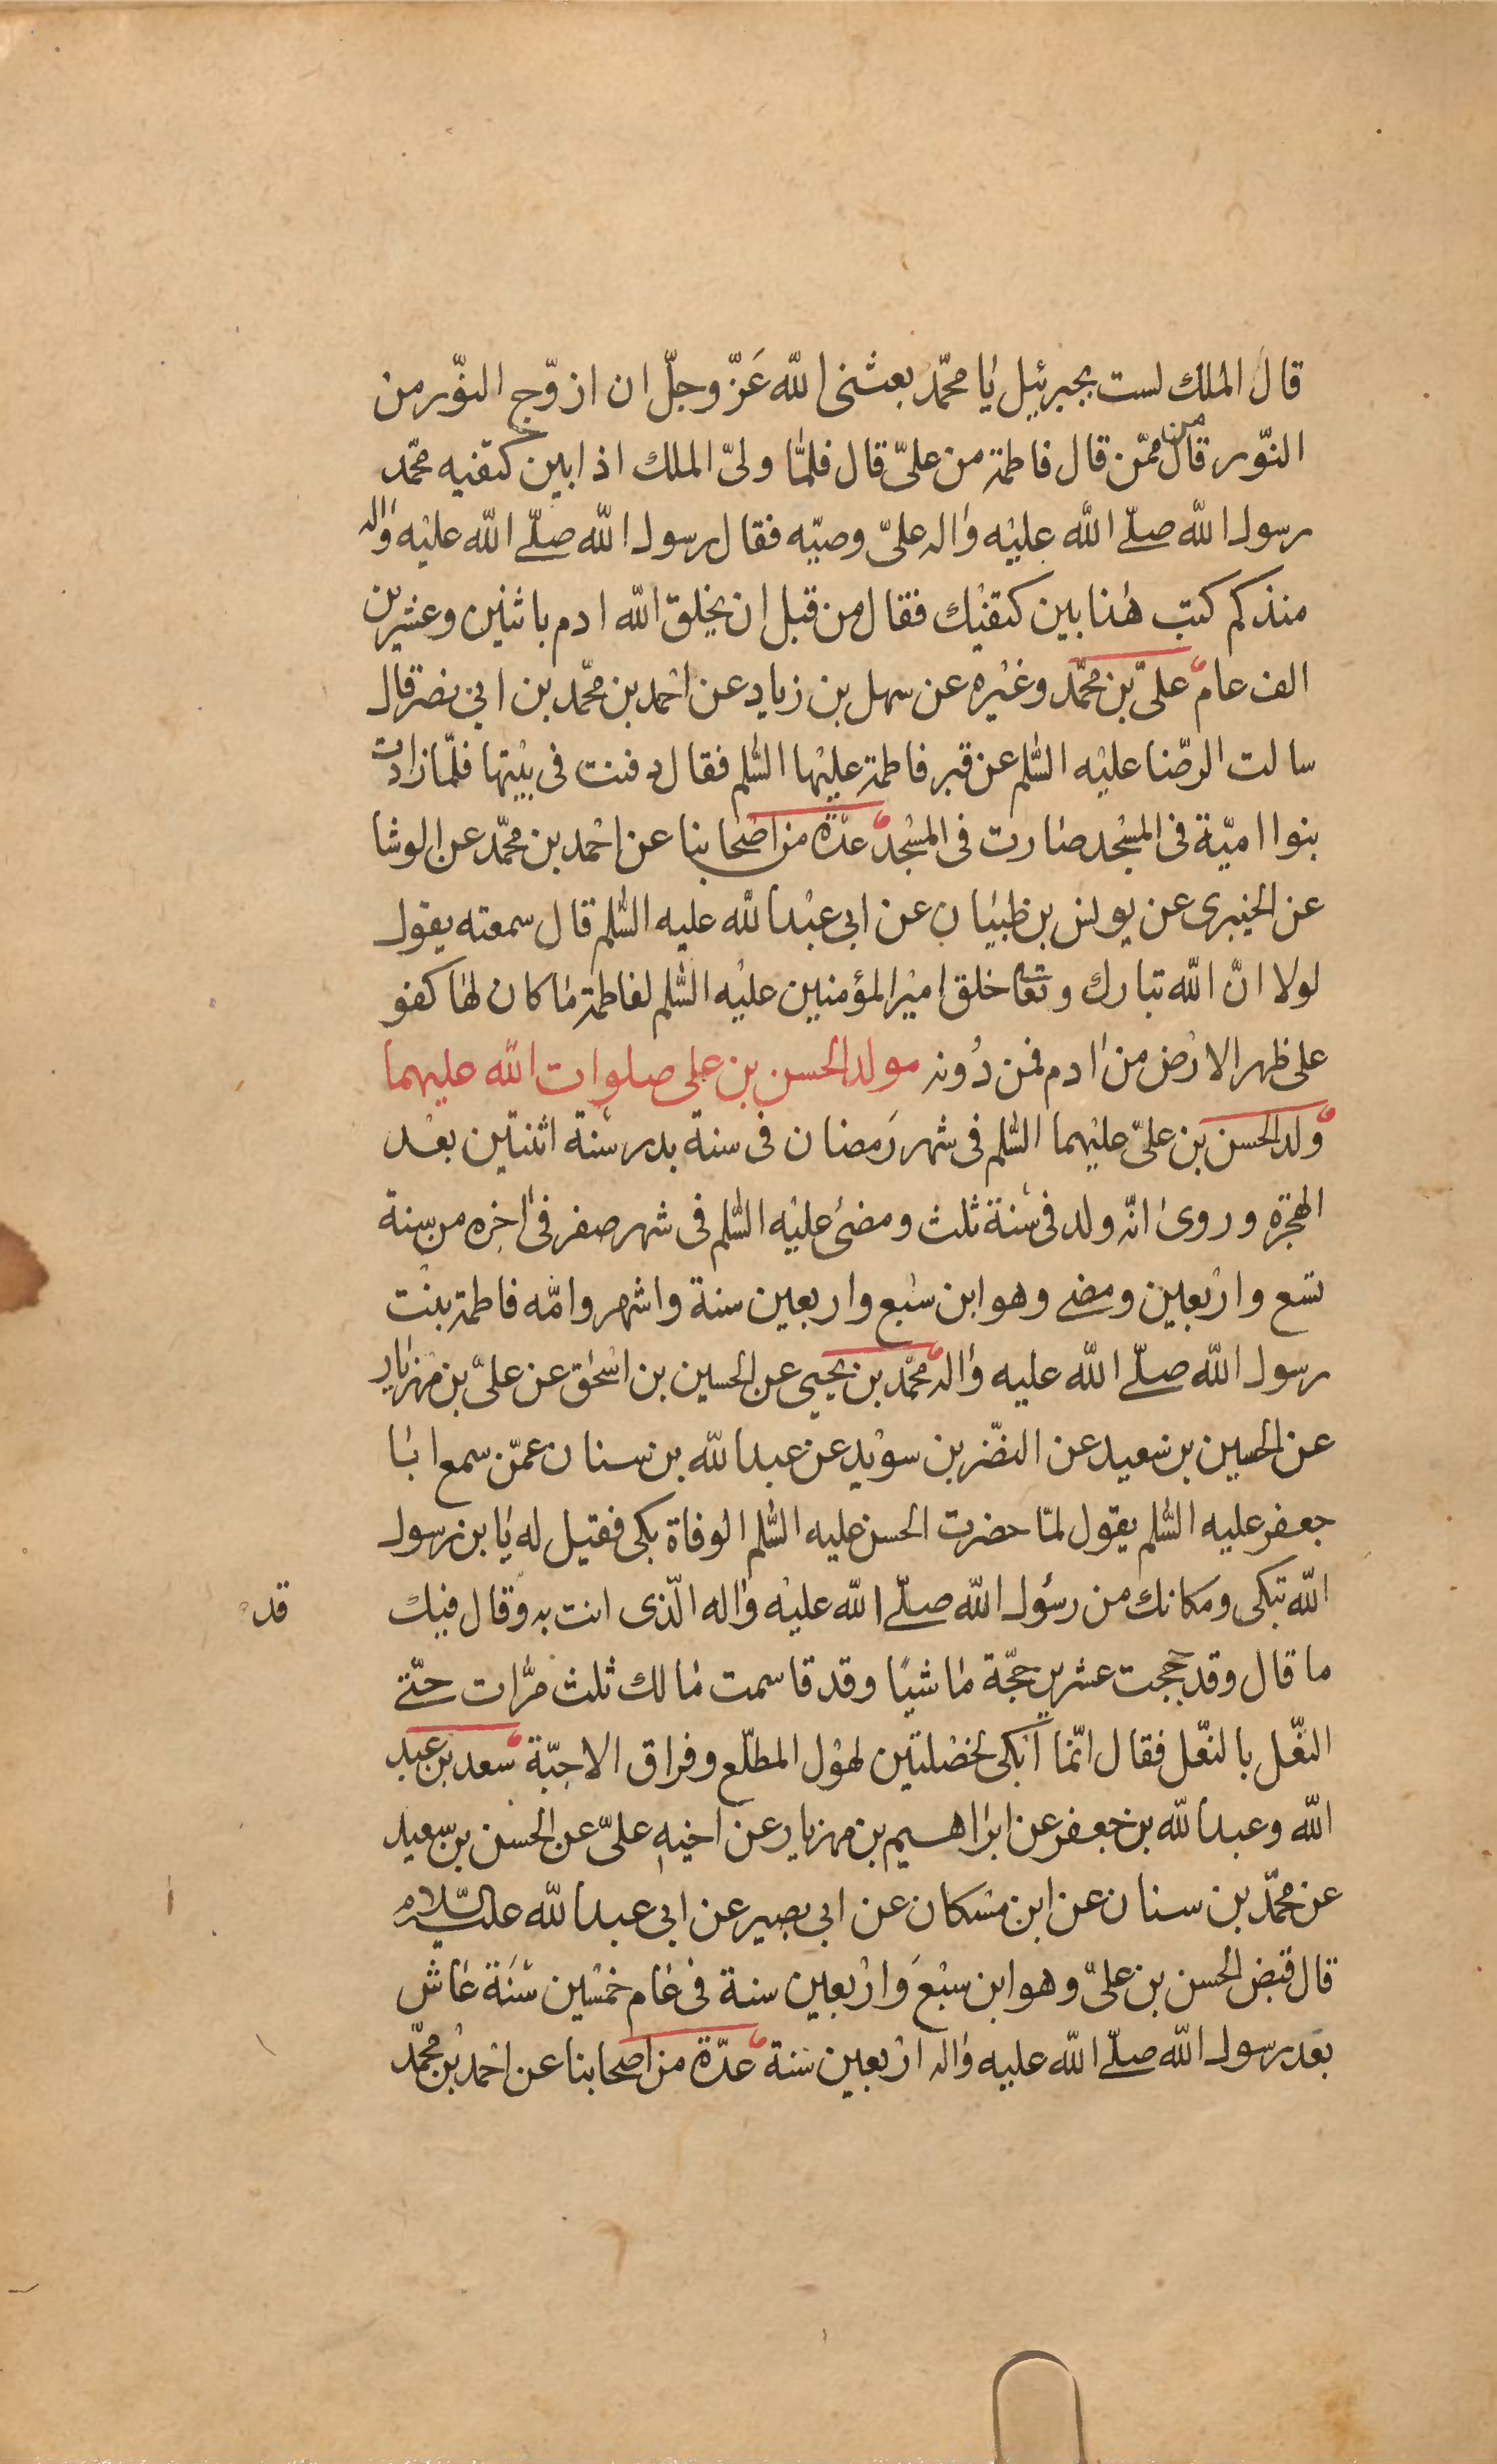 قال الملك لست بجبرئيل يا محمّد بعثنى الله عَزّ وجلّ ان ازوّج النوّر من
النوّر قال من ممّن قال فاطمة من علىّ قال فلمّا ولىّ الملك اذا بين كتفيه محمّد
رسول الله صلّے الله عليه واله علىّ وصيّه فقال رسول الله صلّے الله عليه واله
منذ كم كتب هذا بين كتفيك فقال من قبل ان يخلق الله ادم باثنين وعشرين
الف عام علىّ بن محمّد وغيره عن سهل بن زياد عن احمد بن محمّد بن ابي نصر قال
سالت الرضّا عليه السّلم عن قبر فاطمة عليها السّلم فقال دفنت فى بيتها فلمّا زادت
بنوا اميّة فى المسجد صارت فى المسجد عدّة من اصحابنا عن احمد بن محمّد عن الوشا
عن الخيبرى عن يونس بن ظبيان عن ابى عبد الله عليه السّلم قال سمعته يقول
لولا انّ الله تبارك وتعا خلق امير المؤمنين عليه السّلم لفاطمة ما كان لها كفو
على ظهر الارض من ادم فمن دُونه مولد الحسن بن على صلوات الله عليهما
ولد الحسن بن علىّ عليهما السّلم فى شهر رَمضان فى سنة بدر سنة اثنتين بعد
الهجرة وروى انّه ولد فى سنة ثلث ومضى عليه السّلم فى شهر صفر فى اخره من سنة
تسع واربعين ومضے وهو ابن سبع واربعين سنة واشهر وامّه فاطمة بنت
رسول الله صلّے الله عليه واله محمّد بن يحيى عن الحسين بن اسحٰق عن علىّ بن مهزيار
عن الحسين بن سعيد عن النضّر بن سويد عن عبد الله بن سنان عمّن سمع ابا
جعفر عليه السّلم يقول لمّا حضرت الحسن عليه السّلم الوفاة بكى فقيل له يا بن رسول
الله تبكى ومكانك من رسول الله صلّے الله عليه واله الّذى انت به وقال فيك
قد
ما قال وقد حججت عشرين حجّة ماشيًا وقد قاسمت مالك ثلث مرّات حتّے
النعّل بالنعّل فقال انّما ابكى لخصلتين لهول المطلّع وفراق الاحبّة سعد بن عبد
الله وعبد الله بن جعفر عن ابراهيم بن مهزيار عن اخيه علىّ عن الحسن بن سعيد
عن محمّد بن سنان عن ابن مسكان عن ابى بصير عن ابى عبد الله عليه السّلام
قال قبض الحسن بن علىّ وهو ابن سبعَ واربعين سنة فى عام خمسين سَنَة عاش
بعد رسول الله صلّے الله عليه واله اربعين سَنة عدّة من اصحابنا عن احمد بن محمّد